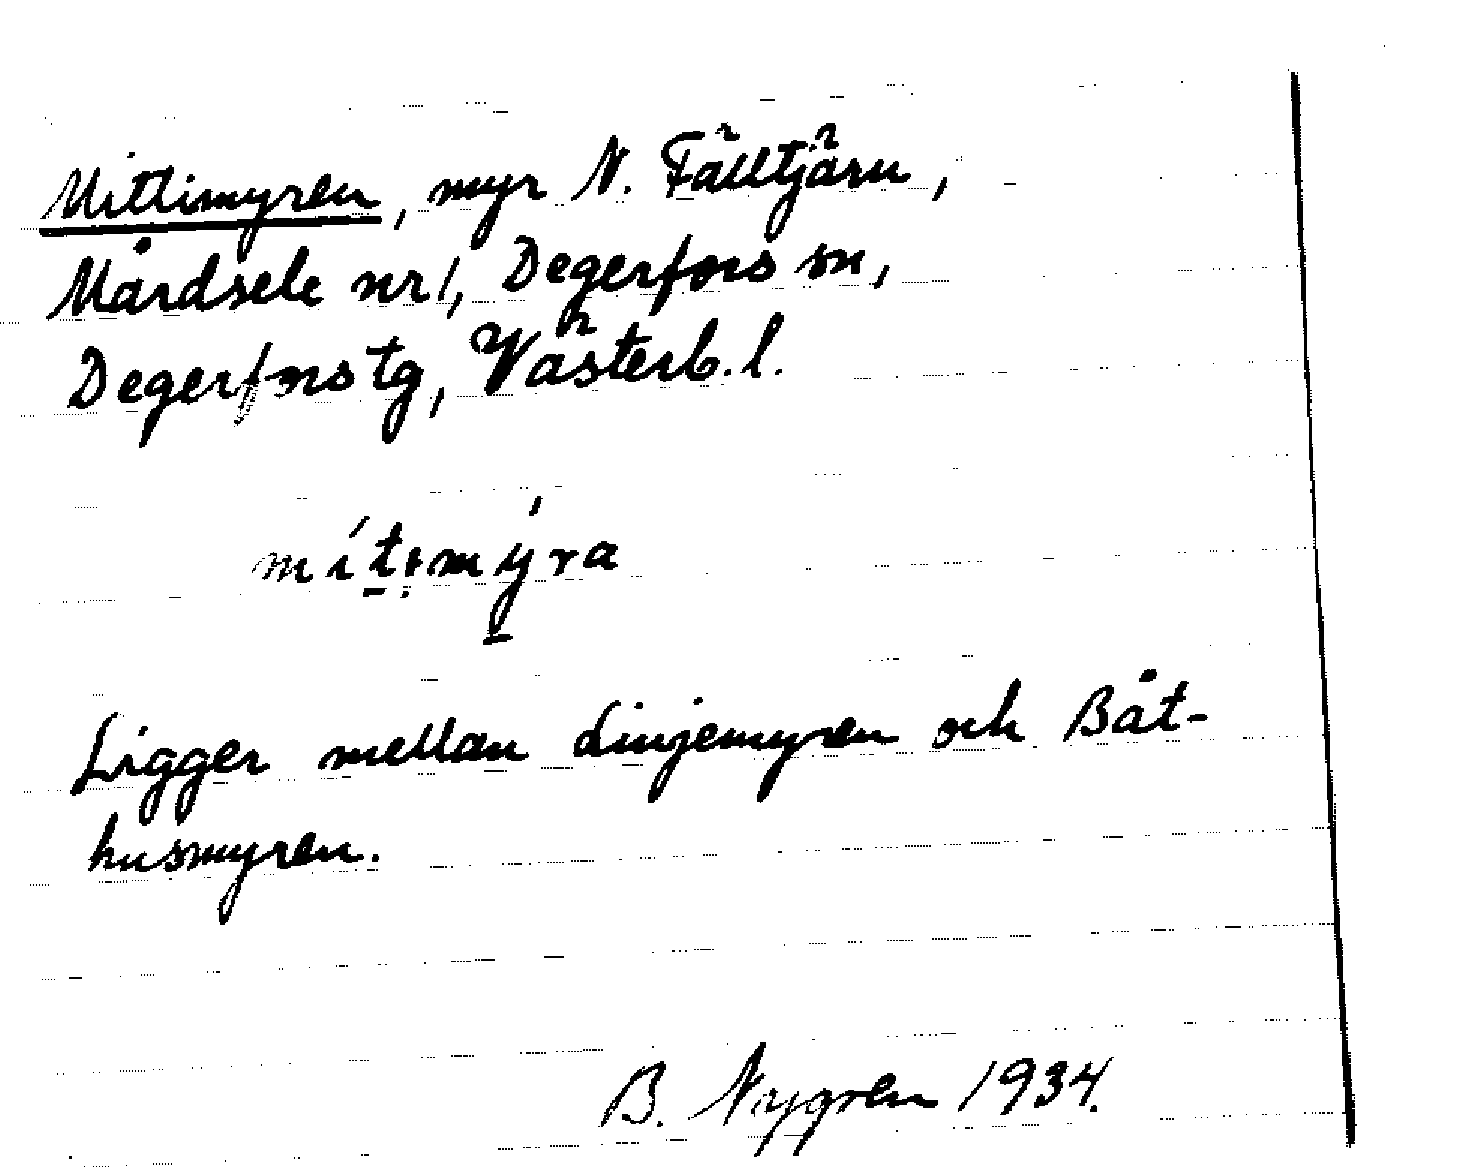 Mittimyren, myr N. Fälltjärn,
Mårdsele nr 1, Degerfors sn,
Degerfors tg, Västerb. l.
Ligger mellan Linjemyren och Båt-
husmyren.
B. Nygren 1934.